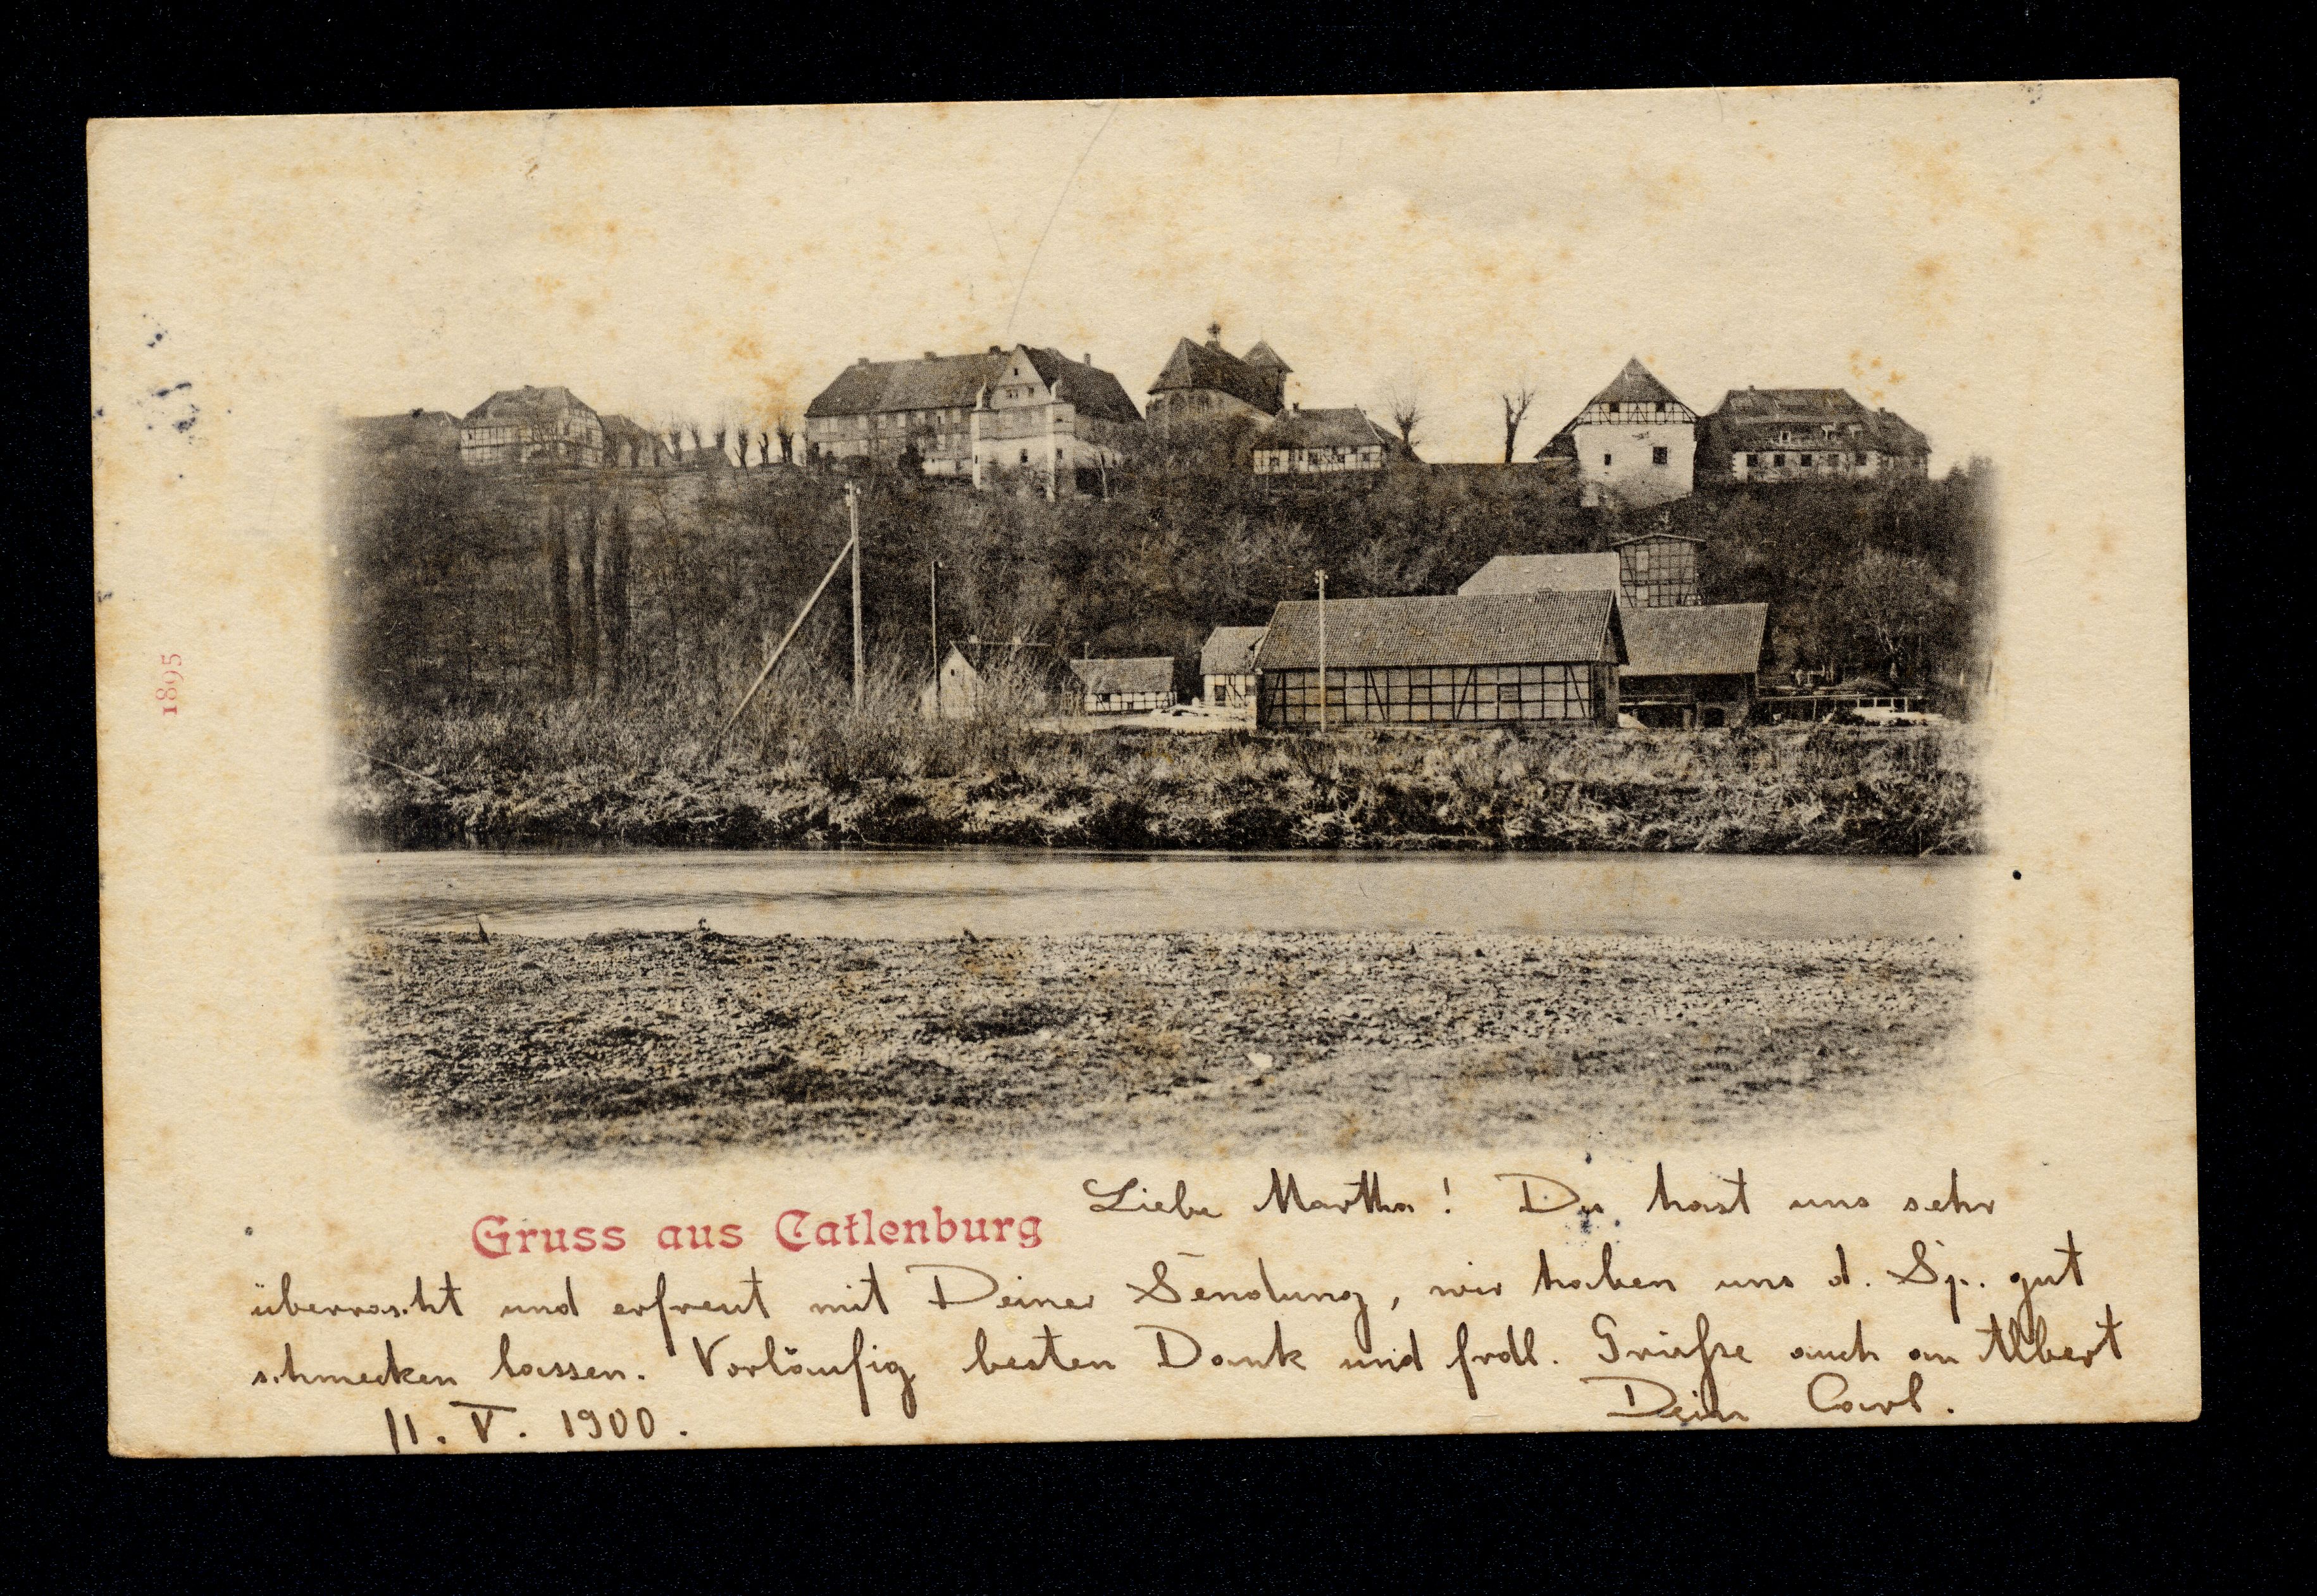 1895
Gruss aus Catlenburg
Liebe Martha! Du hast uns sehr
überrascht und erfreut mit Deiner Sendung, wir haben uns d. Sp. gut
schmecken lassen. Vorläufig besten Dank und frdl. Grüße auch an Albert
Dein Carl.
11. V. 1900.